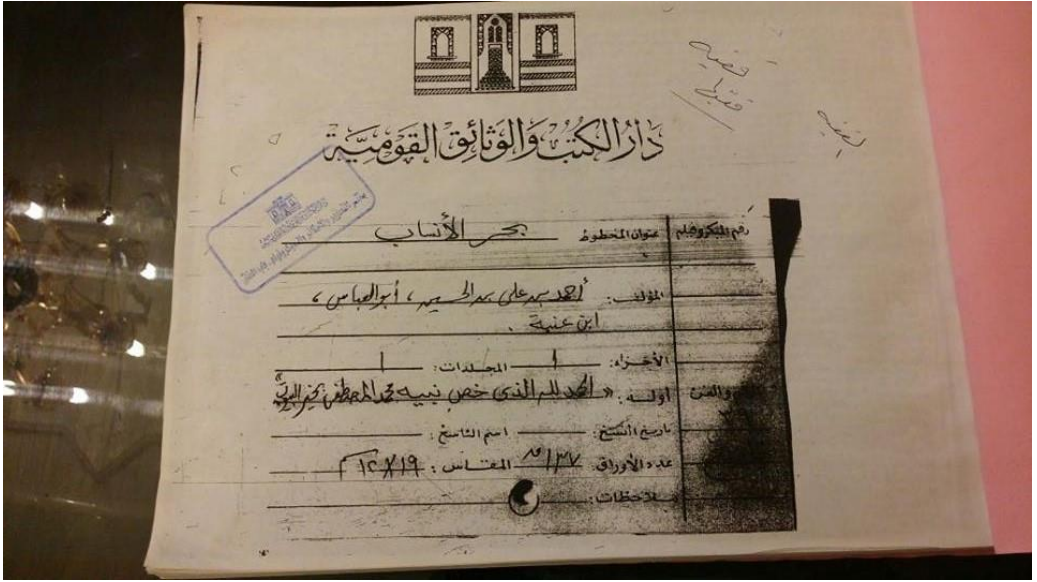 دار الكتب والوثائق القومية
رقم الميكروفيلم عنوان المخطوط بحر الأنساب
المؤلف: أحمد بن علي بن الحسين، أبو العباس،
ابن عنبة.
الأجزاء: ١ المجلدات: ١
والفن أوله: «الحمد لله الذي خص نبيه محمد المصطفى بخير
تاريخ النسخ: اسم الناسخ:
عدد الأوراق ١٣٧ ق المقاس: ١٩ X ١٢ سم
ملاحظات: